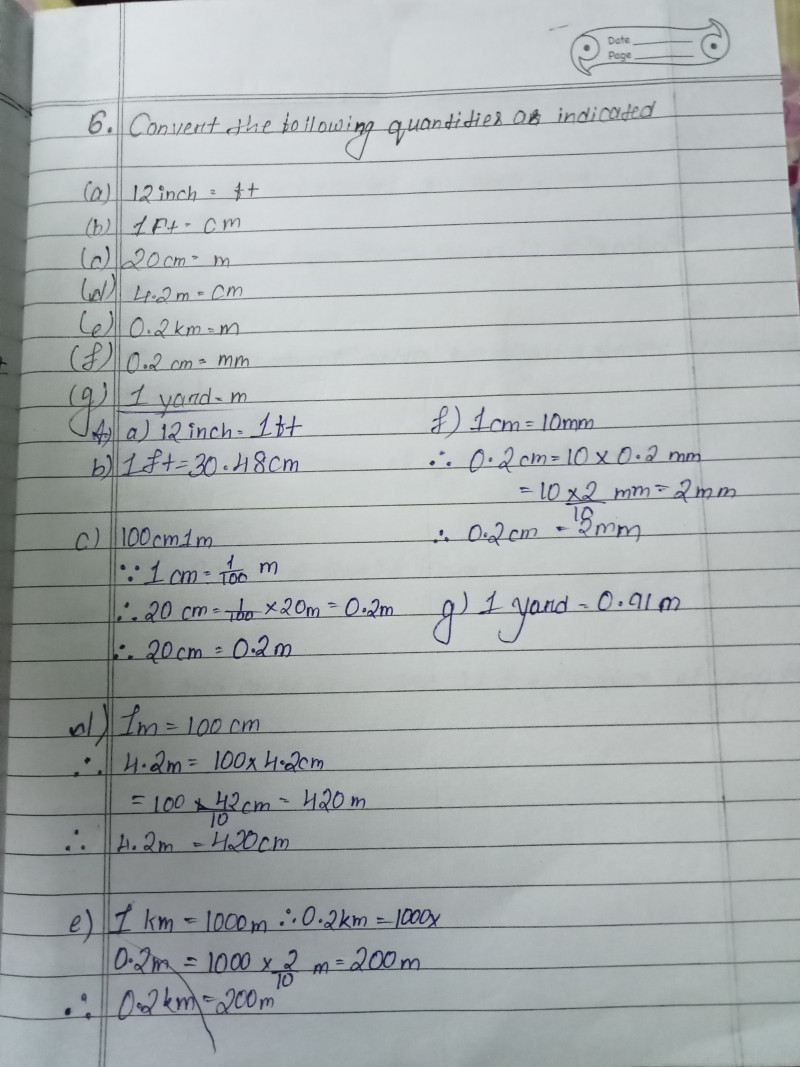 Date
Page
6. Convert the following quantities as indicated
(a) 12 inch = ft
(b) 1 Ft = cm
(c) 20 cm = m
(d) 4.2 m = cm
(e) 0.2 km = m
(f) 0.2 cm = mm
(g) 1 yard = m
A) a) 12 inch = 1 ft
b) 1 ft = 30.48 cm
c) 100 cm 1 m
∵ 1 cm = 1/100 m
∴ 20 cm = 1/100 × 20 m = 0.2 m
∴ 20 cm = 0.2 m
d) 1 m = 100 cm
∴ 4.2 m = 100 × 4.2 cm
= 100 × 42/10 cm = 420 m
∴ 4.2 m = 420 cm
e) 1 km = 1000 m ∴ 0.2 km = 1000 ×
0.2 m = 1000 × 2/10 m = 200 m
∴ 0.2 km = 200 m
f) 1 cm = 10 mm
∴ 0.2 cm = 10 × 0.2 mm
= 10 × 2/10 mm = 2 mm
∴ 0.2 cm = 2 mm
g) 1 yard = 0.91 m